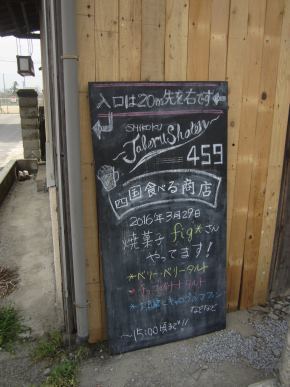 入口は20m先を右です
SHIKOKU
Taberu Shoten
459
四国食べる商店
2016年3月29日
焼菓子 fig*さん
やってます!
*ベリーベリータルト
などなど
~15:00頃まで!!